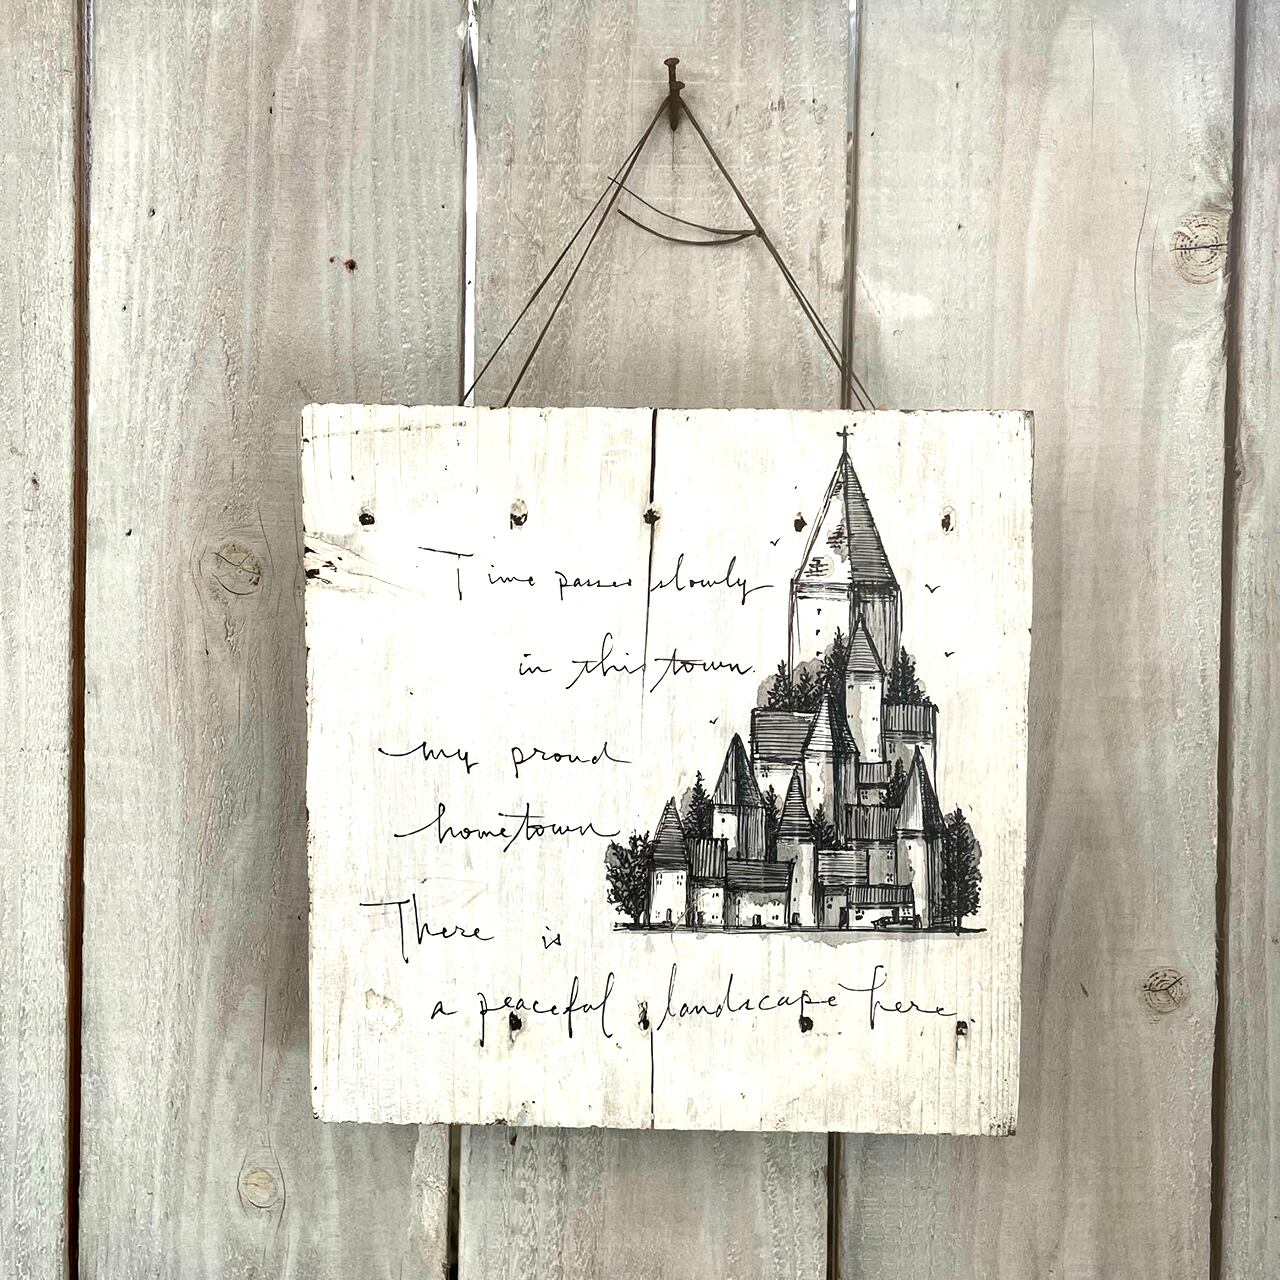 Time passes slowly
in this town.
my proud
hometown
There is
a peaceful landscape here.